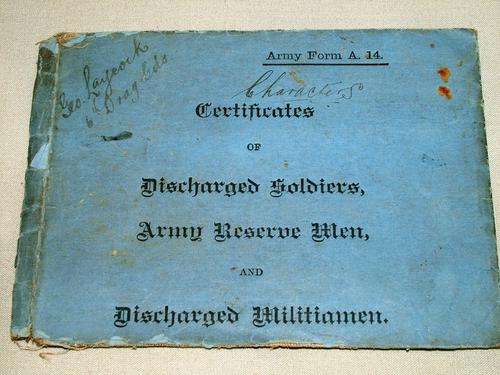 Geo. Laycock
6th Drag Gds
Army Form A. 14.
Characters
Certificates
OF
Discharged Soldiers,
Army Reserve Men,
AND
Discharged Militiamen.